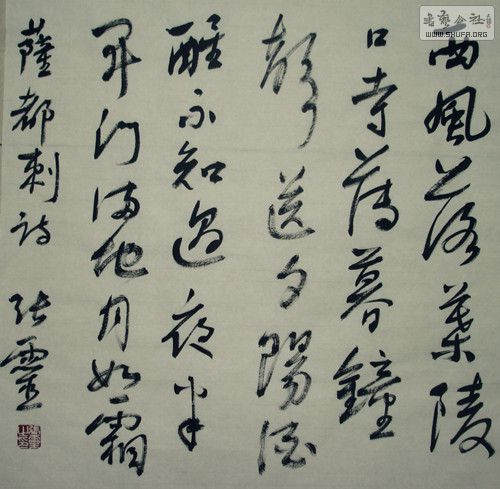 西風落葉陵
口寺薄暮鐘
聲送夕陽酒
醒不知過夜半
開門滿地月如霜
薩都剌詩 張靈
書藝公社
WWW.SHUFA.ORG